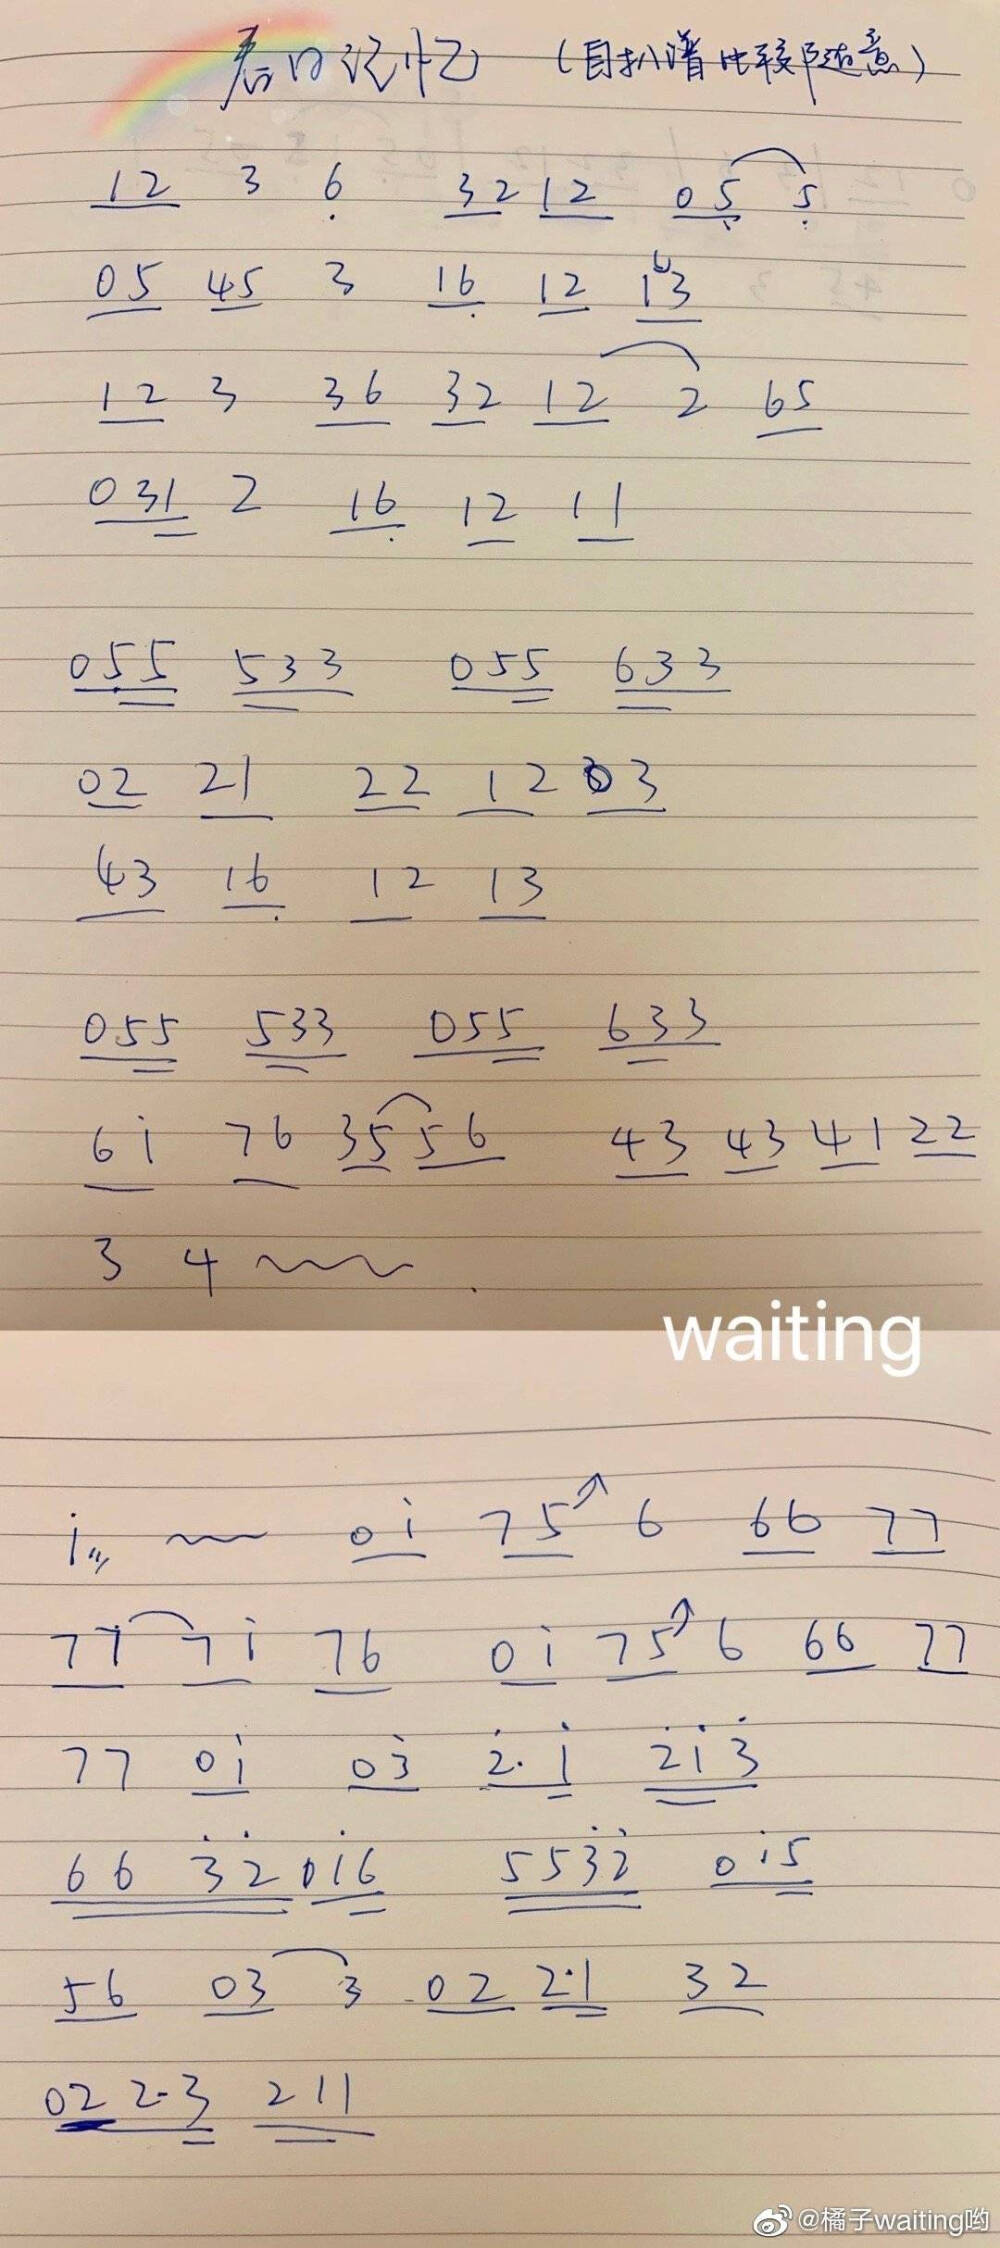 春日记忆 (自扒谱比较随意)
12 3 6 32 12 05 5
05 45 3 16 12 13
12 3 36 32 12 2 65
031 2 16 12 11
055 533 055 633
02 21 22 12 03
43 16 12 13
055 533 055 633
6i 76 35 56 43 43 41 22
3 4
waiting
i 0i 75 6 66 77
77 7i 76 0i 75 6 66 77
77 0i 03 2·i 2i3
66 32 0i6 5532 0i5
56 03 3 02 2·1 32
02 2·3 211
@橘子waiting哟